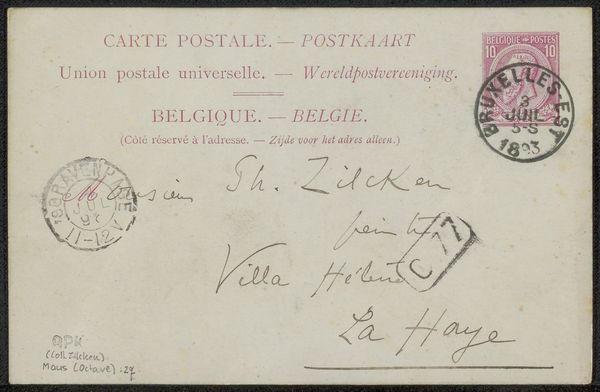 CARTE POSTALE. — POSTKAART
Union postale universelle. — Wereldpostvereeniging.
BELGIQUE. — BELGIE.
(Côté réservé à l'adresse. — Zijde voor het adres alleen.)
BELGIQUE POSTES
10 10
BRUXELLES-EST
3
JUIL
5-S
1893
'SGRAVENHAGE
JUL
11-12V
Monsieur Ph. Zilcken
peintre
Villa Hélène
C 77
La Haye
RPK
(Coll. Zilcken)
Maus (Octave) :27